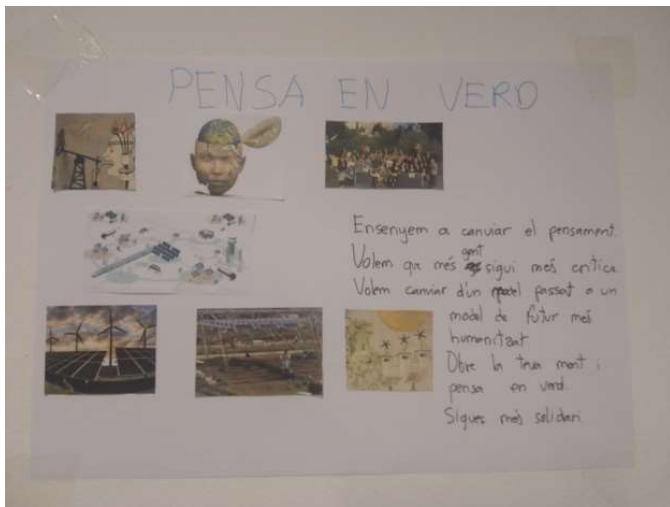 PENSA EN VERD
Ensenyem a canviar el pensament.
Volem que més gent sigui més crítica
Volem canviar d'un model passat a un
model de futur més
humanitzat
Obre la teva ment i
pensa en verd.
Sigues més solidari